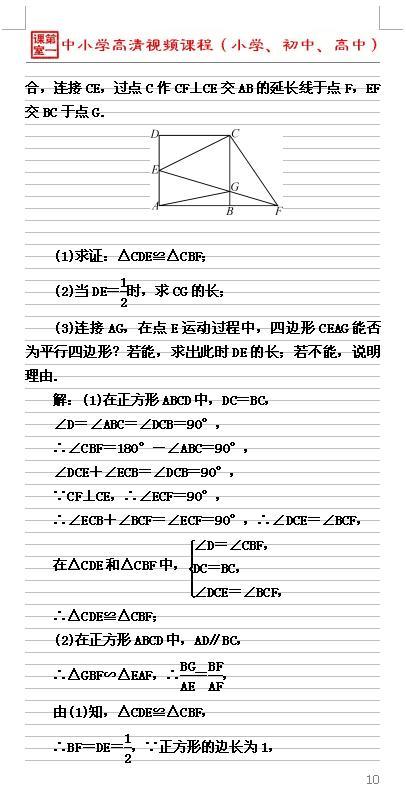 课第
室一
中小学高清视频课程（小学、初中、高中）
合，连接CE，过点C作CF⊥CE交AB的延长线于点F，EF
交BC于点G.
D C
E
G
A B F
(1)求证：△CDE≌△CBF；
(2)当DE=1/2时，求CG的长；
(3)连接AG，在点E运动过程中，四边形CEAG能否
为平行四边形？若能，求出此时DE的长；若不能，说明
理由.
解：(1)在正方形ABCD中，DC=BC，
∠D=∠ABC=∠DCB=90°，
∴∠CBF=180°-∠ABC=90°，
∠DCE+∠ECB=∠DCB=90°，
∵CF⊥CE，∴∠ECF=90°，
∴∠ECB+∠BCF=∠ECF=90°，∴∠DCE=∠BCF，
在△CDE和△CBF中，{∠D=∠CBF，
DC=BC，
∠DCE=∠BCF，
∴△CDE≌△CBF；
(2)在正方形ABCD中，AD∥BC，
∴△GBF∽△EAF，∴BG/AE=BF/AF，
由(1)知，△CDE≌△CBF，
∴BF=DE=1/2，∵正方形的边长为1，
10